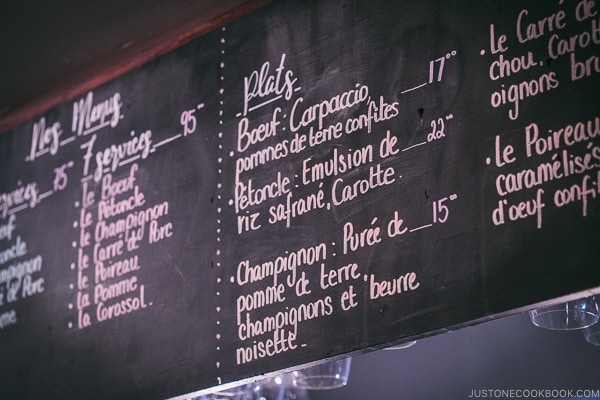 Nos Menus
75
7 services 95
Le Boeuf
Le Pétoncle
Le Champignon
Le Carré de Porc
Le Poireau
La Pomme
La Corossol.
Plats
Boeuf : Carpaccio, 17°°
pommes de terre confites
Pétoncle : Emulsion de 22°°
riz safrané, Carotte.
Champignon : Purée de 15°°
pomme de terre,
champignons et beurre
noisette.
Le Carré de
chou, Carot
oignons bru
Le Poireau
caramélisés
d'oeuf confi
JUSTONECOOKBOOK.COM